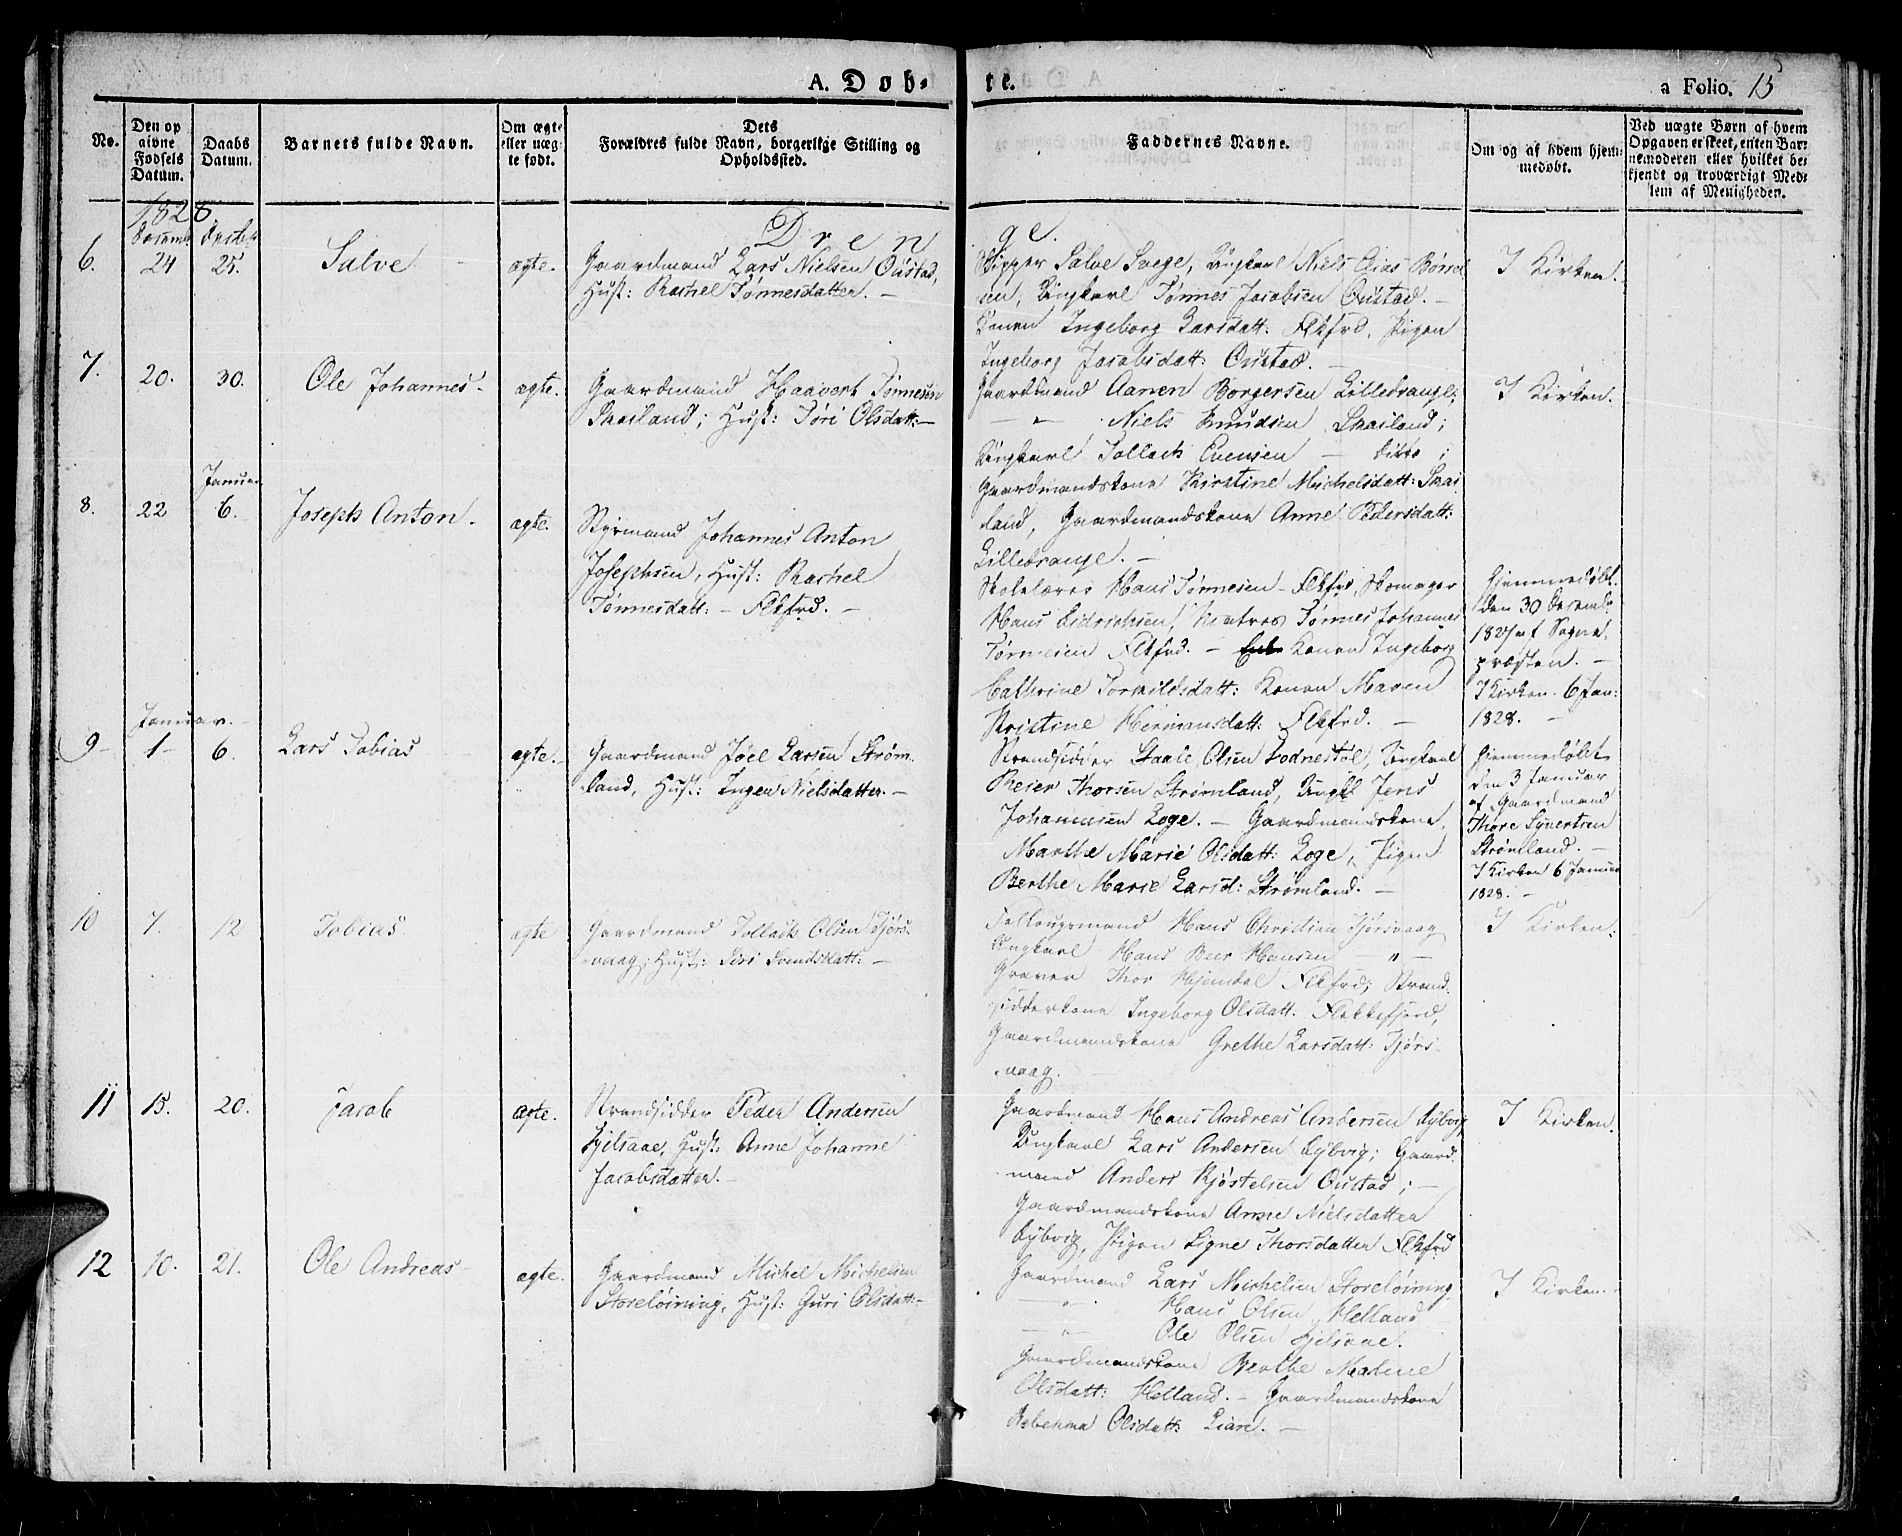 A. Døb-
te.
a Folio. 15
No.
Den op
givne
Fødsels
Datum.
Daabs
Datum.
Barnets fulde Navn.
Om ægte
eller uæg-
te født.
Dets
Forældres fulde Navn, borgerlige Stilling og
Opholdssted.
Faddernes Navne.
Om og af hvem hjem-
medøbt.
Ved uægte Børn af hvem
Opgaven er skeet, enten Bar-
nemoderen eller hvilket be-
kjendt og troværdigt Med-
lem af Menigheden.
1828
Drenge.
6.
24
25.
Salve
ægte.
Gaardmand Lars Nielsen Oustad,
Hust: Rachel Tønnesdatter. -
Skipper Salve Svege, Ungkarl Niels Elias
Ungkarl Tønnes Jacobsen Oustad. -
Konen Ingeborg Larsdatt: Flkfrd, Pigen
Ingeborg Jacobsdatt: Oustad. -
I Kirken.
7.
20.
30.
Ole Johannes.
ægte.
Gaardmand Haavert Tønnesen
Skailand; Hust: Tøri Olsdatt: -
Gaardmand Aanen Borgersen Lilledrange;
- " - Niels Knudsen Skailand;
Ungkarl Tollack Evensen - ditto;
Gaardmandskone Kirstine Michelsdatt: Skai
land, Gaardmandskone Anne Pedersdatt:
Lilledrange. -
I Kirken.
Januar
8.
22
6.
Joseph Anton.
ægte.
Styrmand Johannes Anton
Josephsen, Hust: Rachel
Tønnesdatt: - Flkfrd. -
Skolelærer Hans Tønnesen - Flkfrd, Skomager
Hans Didrichsen, Matros Tønnes Johannes
Tønnesen Flkfrd. - Konen Ingeborg
Cathrine Torkildsdatt: Konen Maren
Kristine Hermansdatt: Flkfrd. -
Hjemmedøbt
den 30 Decemb:
1827 af Sogne
præsten. -
I Kirken 6 Jan:
1828. -
Januar. -
9 -
1 -
6.
Lars Tobias
ægte. -
Gaardmand Joel Larsen Strøm
land, Hust: Inger Nielsdatter. -
Strandsidder Staale Olsen Lodnestøl, Ungkarl
Reier Thorsen Strømland, Ungkl Jens
Johannesen Loge. - Gaardmandskone
Marthe Marie Olsdatt: Loge, Pigen
Berthe Marie Larsd: Strømland. -
Hjemmedøbt
den 3 Januar
af Gaardmand
Thore Syvertsen
Strømland. -
I Kirken 6 Januar
1828. -
10
7.
12
Tobias
ægte
Gaardmand Tollack Olsen Tjørs-
vaag; Hust: Siri Svendsdatt: -
Hans Christian Tjørsvaag
Ungkarl Hans Beer Hansen " -
Graver Thor Hjemdal Flkfrd; Strand-
sidderkone Ingeborg Olsdatt: Flekkefjord,
Gaardmandskone Grethe Larsdatt: Tjørs-
vaag.
I Kirken:
11
15.
20.
Jacob
ægte.
Strandsidder Peder Andersen
Fjelsaae, Hust: Anne Johanne
Jacobsdatter. -
Gaardmand Hans Andreas Andersen Dybvig,
Ungkarl Lars Andersen Dybvig; Gaard-
mand Anders Kjøstelsen Oustad; -
Gaardmandskone Anne Nielsdatter
Dybvig, Pigen Signe Thorsdatter Flkfrd
I Kirken.
12
10.
21.
Ole Andreas
ægte.
Gaardmand Michel Michelsen
Storeløining, Hust: Guri Olsdatt: -
Gaardmand Lars Michelsen Storeløining
- " - Hans Olsen Helland
- " - Ole Olsen Fjelsaae.
Gaardmandskone Berthe Malene
Olsdatt: Helland. - Gaardmandskone
Rebekka Olsdatt: Lian. -
I Kirken.